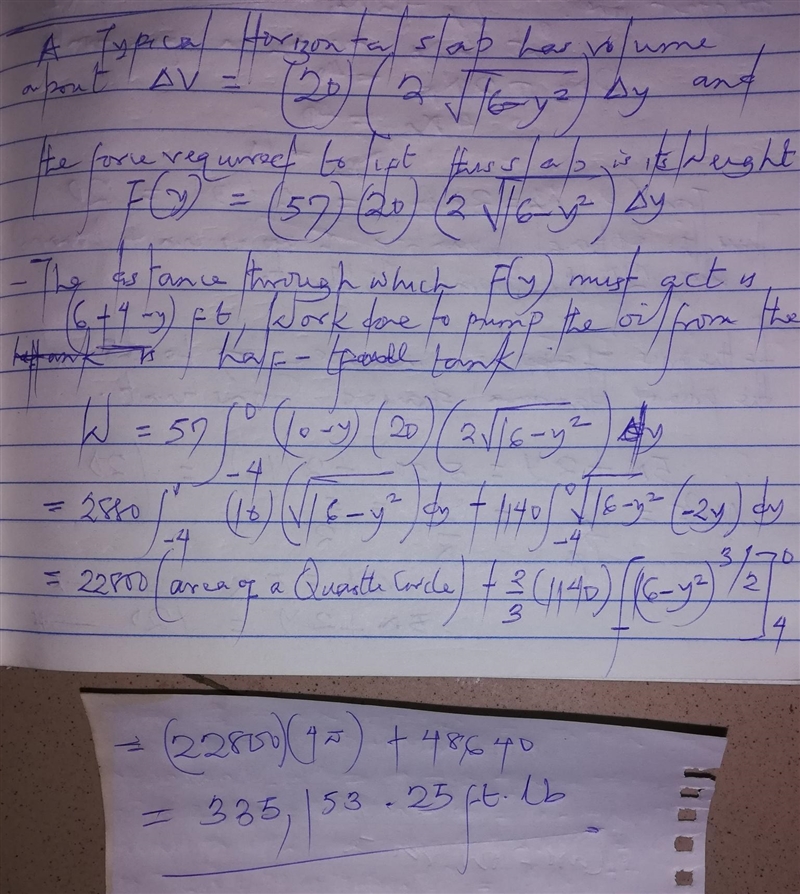 A Typical Horizontal slap has volume
about ΔV = (20) (2 √16-y²) Δy and
the force required to lift this slap is its Weight
F(y) = (57) (20) (2 √16-y²) Δy
- The distance through which F(y) must act is
(6 + 4 - y) ft, Work done to pump the oil from the
half - tank
W = 57 ∫₋₄⁰ (10-y) (20) (2√16-y²) dy
= 2880 ∫₋₄⁰ (10) (√16-y²) dy + 1140 ∫₋₄⁰ √16-y² (-2y) dy
= 22800 (area of a Quarter Circle) + 2/3 (1140) [(16-y²)^3/2]₄⁰
= (22800)(4π) + 48,640
= 335,153.25 ft.lb